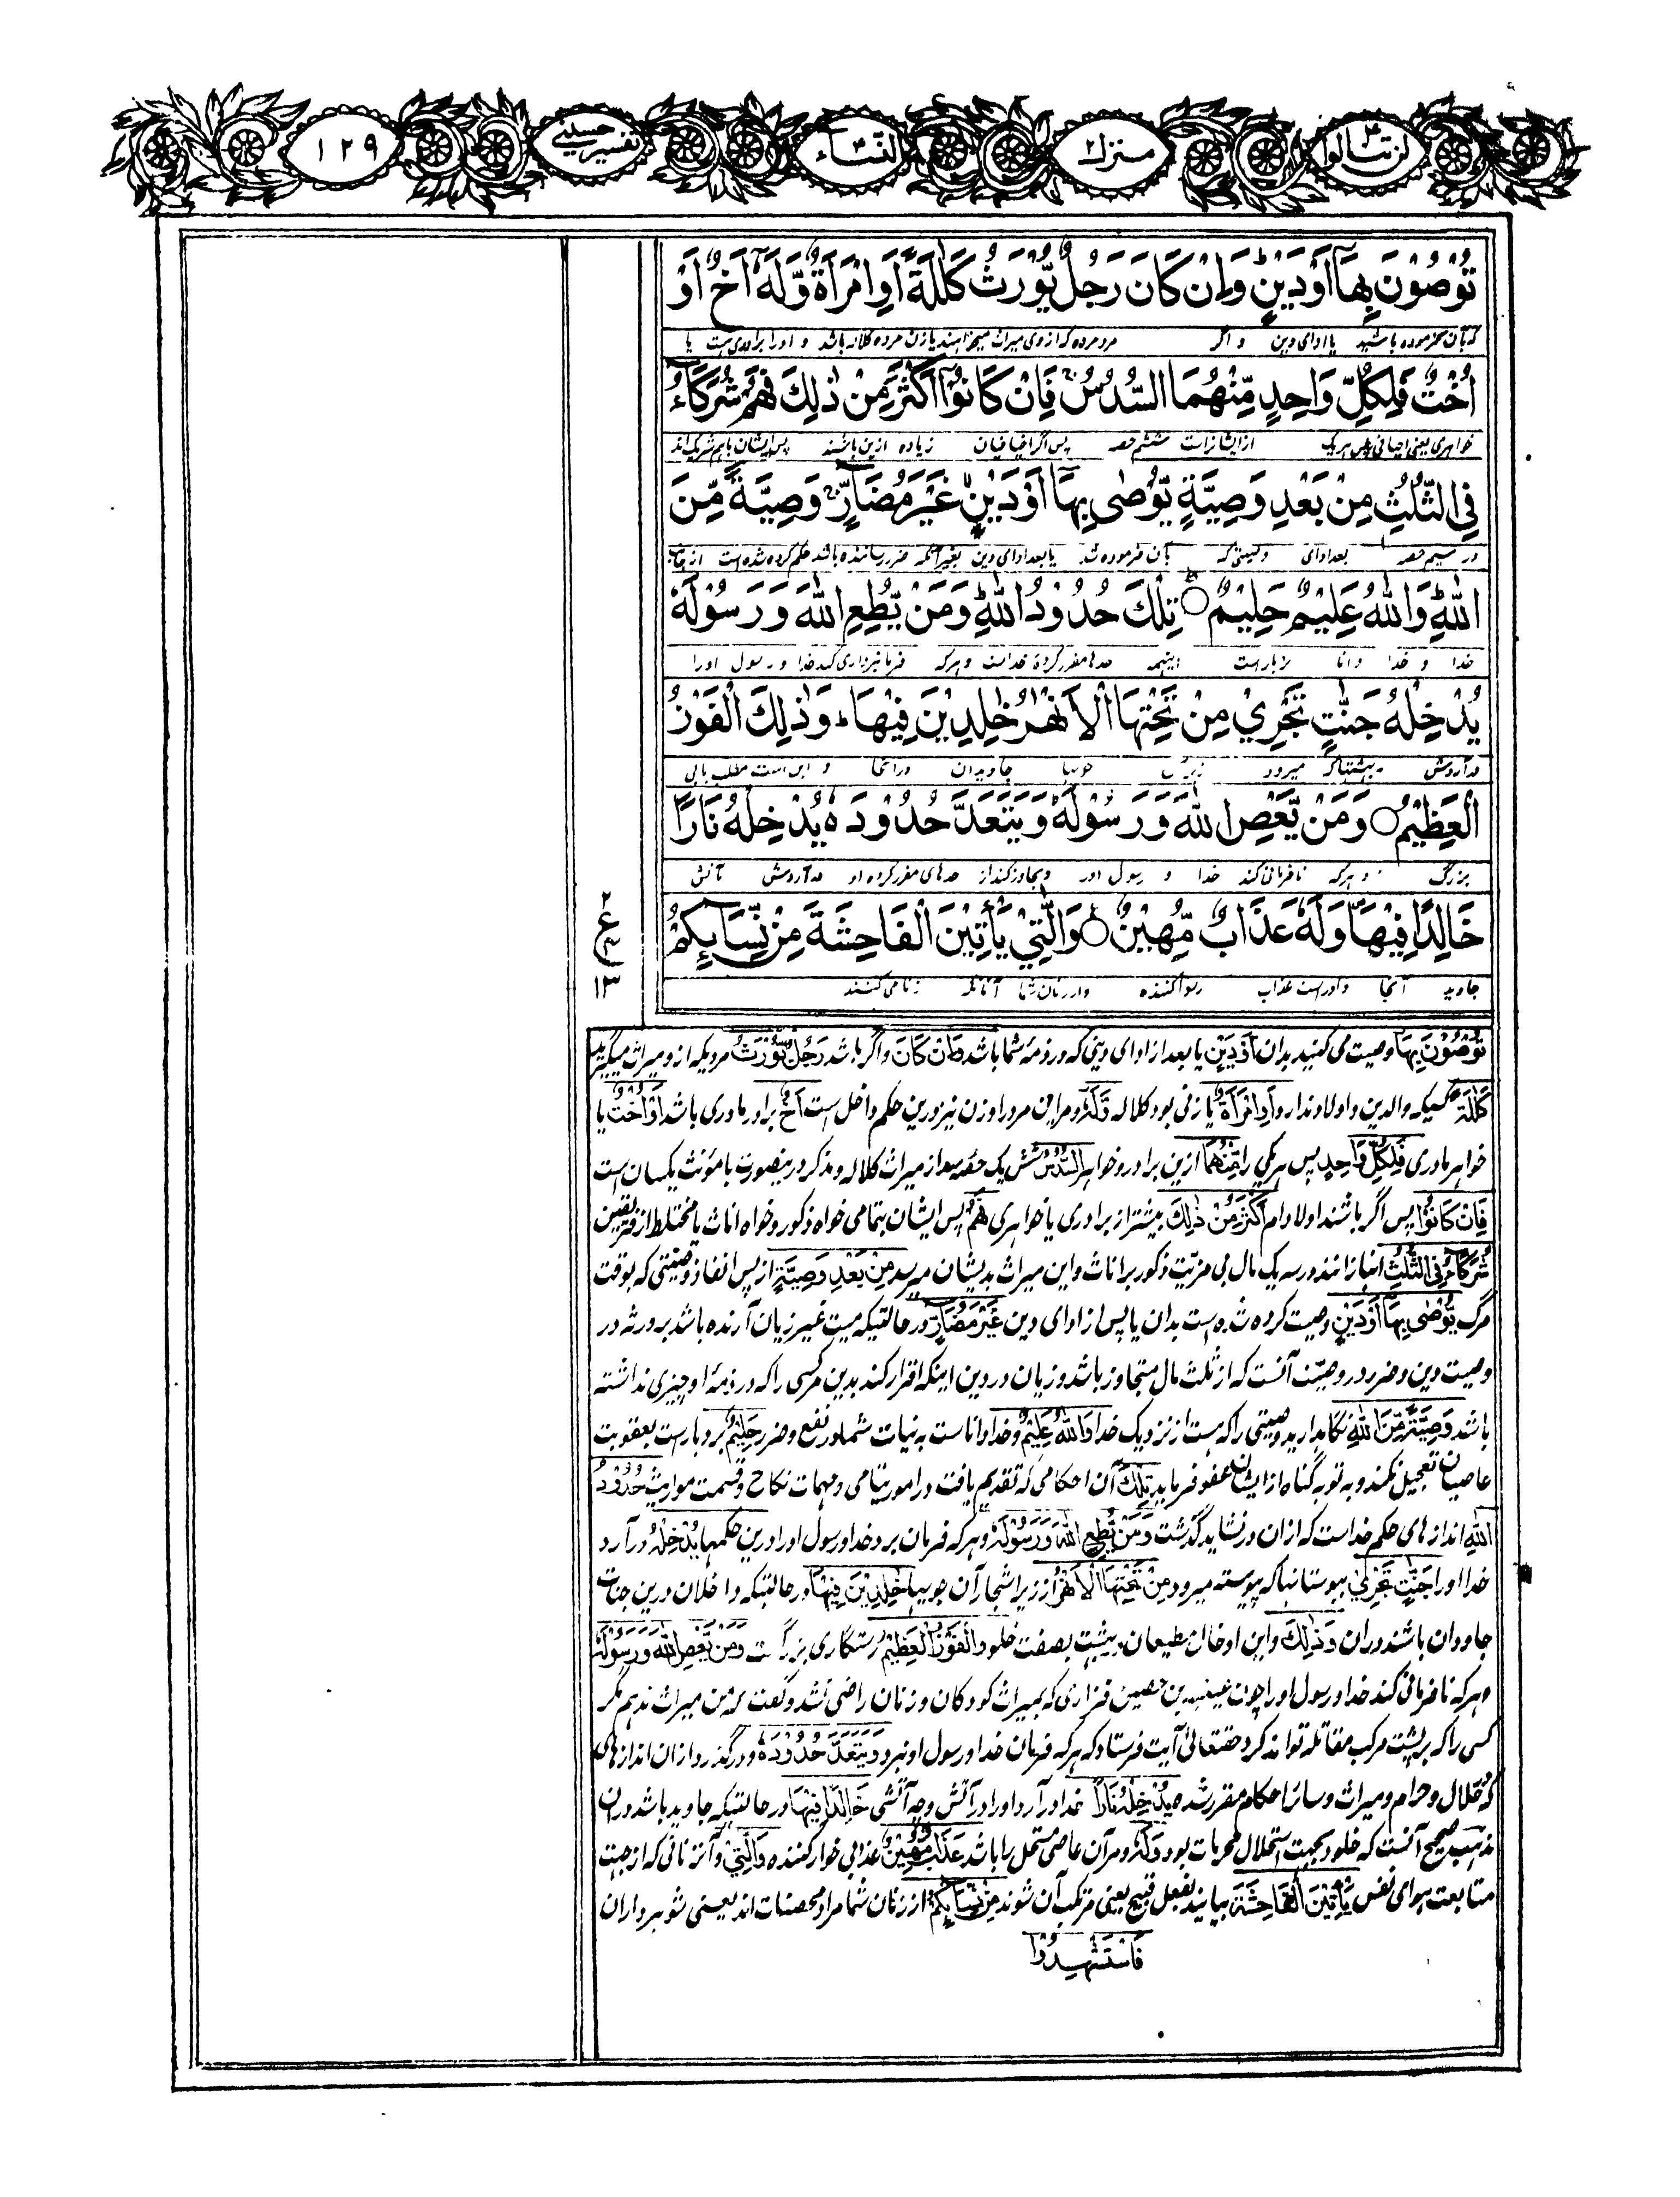 لن تنالوا ۴ منزل ۲ النساء ۴ تفسیر حسینی ۱۲۹
تُوْصُوْنَ بِهَآ اَوْ دَيْنٍ ؕ وَاِنْ كَانَ رَجُلٌ يُّوْرَثُ كَلٰلَةً اَوِ امْرَاَةٌ وَّلَهٗٓ اَخٌ اَوْ
که بآن فرموده باشید یا ادای دین و اگر مرد مرده که از وی میراث میخواهند یا زن مرده کلاله باشد و او را برادری هست یا
اُخْتٌ فَلِكُلِّ وَاحِدٍ مِّنْهُمَا السُّدُسُ ۚ فَاِنْ كَانُوْٓا اَكْثَرَ مِنْ ذٰلِكَ فَهُمْ شُرَكَآءُ
خواهری یعنی اخیافی پس هریک از ایشانراست ششم حصه پس اگر اخیافیان زیاده ازین باشند پس ایشان باهم شریک اند
فِي الثُّلُثِ مِنْ بَعْدِ وَصِيَّةٍ يُّوْصٰى بِهَآ اَوْ دَيْنٍ ۙ غَيْرَ مُضَآرٍّ ۚ وَصِيَّةً مِّنَ
در سیم حصه بعد ادای وصیتی که بآن فرموده شد یا بعد ادای دین بغیر آنکه ضرر رساننده باشد حکم کرده شده است از جانب
اللّٰهِ ؕ وَاللّٰهُ عَلِيْمٌ حَلِيْمٌ ؕ تِلْكَ حُدُوْدُ اللّٰهِ ؕ وَمَنْ يُّطِعِ اللّٰهَ وَرَسُوْلَهٗ
خدا و خدا دانا بردبارست اینهمه حدها مقرر کردهٔ خداست و هرکه فرمانبرداری کند خدا و رسول اورا
يُدْخِلْهُ جَنّٰتٍ تَجْرِيْ مِنْ تَحْتِهَا الْاَنْهٰرُ خٰلِدِيْنَ فِيْهَا ؕ وَذٰلِكَ الْفَوْزُ
درآردش بهشتها که میرود زیر آن جویها جاویدان در انجا و این است مطلب یابی
الْعَظِيْمُ وَمَنْ يَّعْصِ اللّٰهَ وَرَسُوْلَهٗ وَيَتَعَدَّ حُدُوْدَهٗ يُدْخِلْهُ نَارًا
بزرگ و هرکه نافرمانی کند خدا و رسول اورا و تجاوز کند از حدهای مقرر کرده او درآردش آتش
خَالِدًا فِيْهَا وَلَهٗ عَذَابٌ مُّهِيْنٌ وَالّٰتِيْ يَاْتِيْنَ الْفَاحِشَةَ مِنْ نِّسَآىِٕكُمْ
جاوید آنجا و اوراست عذاب رسوا کننده و از زنان شما آنانکه زنا می کنند
۲
ع
۱۳
تُوْصُوْنَ بِهَا وصیت می کنید بدان اَوْ دَيْنٍ یا بعد از ادای دینی که در ذمهٔ شما باشد وَاِنْ كَانَ و اگر باشد رَجُلٌ يُّوْرَثُ مردیکه ازو میراث میگیرند
كَلٰلَةً کسیکه والدین و اولاد ندارد اَوِ امْرَاَةٌ یا زنی بود کلاله وَلَهٗ و مر این مرد را و زن نیز درین حکم داخل است اَخٌ برادر مادری باشد اَوْ اُخْتٌ یا
خواهر مادری فَلِكُلِّ وَاحِدٍ پس هر یکی را مِنْهُمَا ازین برادر و خواهر السُّدُسُ شش یک حصه رسد از میراث کلاله و مذکر درینصورت با مؤنث یکسان است
فَاِنْ كَانُوْا پس اگر باشند اولاد ام اَكْثَرَ مِنْ ذٰلِكَ بیشتر از برادری یا خواهری فَهُمْ پس ایشان بتمامی خواه ذکور و خواه اناث یا مختلط از فریقین
شُرَكَآءُ فِي الثُّلُثِ انبازانند در سه یک مال بی مزیت ذکور بر اناث و این میراث بدیشان میرسد مِنْ بَعْدِ وَصِيَّةٍ از پس انفاذ وصیتی که بوقت
مرگ يُّوْصٰى بِهَآ اَوْ دَيْنٍ وصیت کرده شده است بدان یا پس از ادای دین غَيْرَ مُضَآرٍّ در حالتیکه میت غیر زیان آرنده باشد بر ورثه در
وصیت و دین و ضرر در وصیت آنست که از ثلث مال متجاوز باشد و زیان در دین اینکه اقرار کند بدین مر کسی را که در ذمهٔ او چیزی نداشته
باشد وَصِيَّةً مِّنَ اللّٰهِ نگاهدارید وصیتی را که هست از نزدیک خدا وَاللّٰهُ عَلِيْمٌ و خدا داناست به نیات شما در نفع و ضرر حَلِيْمٌ بردبارست بعقوبت
عاصیان تعجیل نکند و به توبه گناه از ایشان عفو فرماید تِلْكَ آن احکامی که تقدیم یافت در امور یتامی و مهمات نکاح و قسمت مواریث حُدُوْدُ
اللّٰهِ اندازهای حکم خداست که ازان در نشاید گذشت وَمَنْ يُّطِعِ اللّٰهَ وَرَسُوْلَهٗ و هرکه فرمان برد خدا و رسول او را درین حکمها يُدْخِلْهُ درآرد
خدا او را جَنّٰتٍ تَجْرِيْ ببوستانها که پیوسته میرود مِنْ تَحْتِهَا الْاَنْهٰرُ از زیر اشجار آن جویها خٰلِدِيْنَ فِيْهَا در حالتیکه داخلان درین جنات
جاودان باشند دران وَذٰلِكَ و این ادخال مطیعان بهشت بصفت خلود الْفَوْزُ الْعَظِيْمُ رستگاری بزرگ است وَمَنْ يَّعْصِ اللّٰهَ وَرَسُوْلَهٗ
و هرکه نافرمانی کند خدا و رسول او را چون عیینه بن حصین فزاری که بمیراث کودکان و زنان راضی نشد و گفت که من میراث ندهم مگر
کسی را که بر پشت مرکب مقاتله تواند کرد حقتعالی آیت فرستاد که هرکه فرمان خدا و رسول او نبرد وَيَتَعَدَّ حُدُوْدَهٗ و درگذرد از ان اندازهای
که حلال و حرام و میراث و سائر احکام مقرر شده يُدْخِلْهُ نَارًا خدا درآرد او را در آتش و چه آتشی خَالِدًا فِيْهَا در حالتیکه جاوید باشد دران
مذهب صحیح آنست که خلود بجهت استحلال محرمات بود وَلَهٗ و مرآن عاصی مستحل را باشد عَذَابٌ مُّهِيْنٌ عذابی خوار کننده وَالّٰتِيْ و آنزنانی که از جهت
متابعت هوای نفس يَاْتِيْنَ الْفَاحِشَةَ بیایند بفعل قبیح یعنی مرتکب آن شوند مِنْ نِّسَآىِٕكُمْ از زنان شما مراد محصنات اند یعنی شوهرداران
فَاسْتَشْهِدُوْا